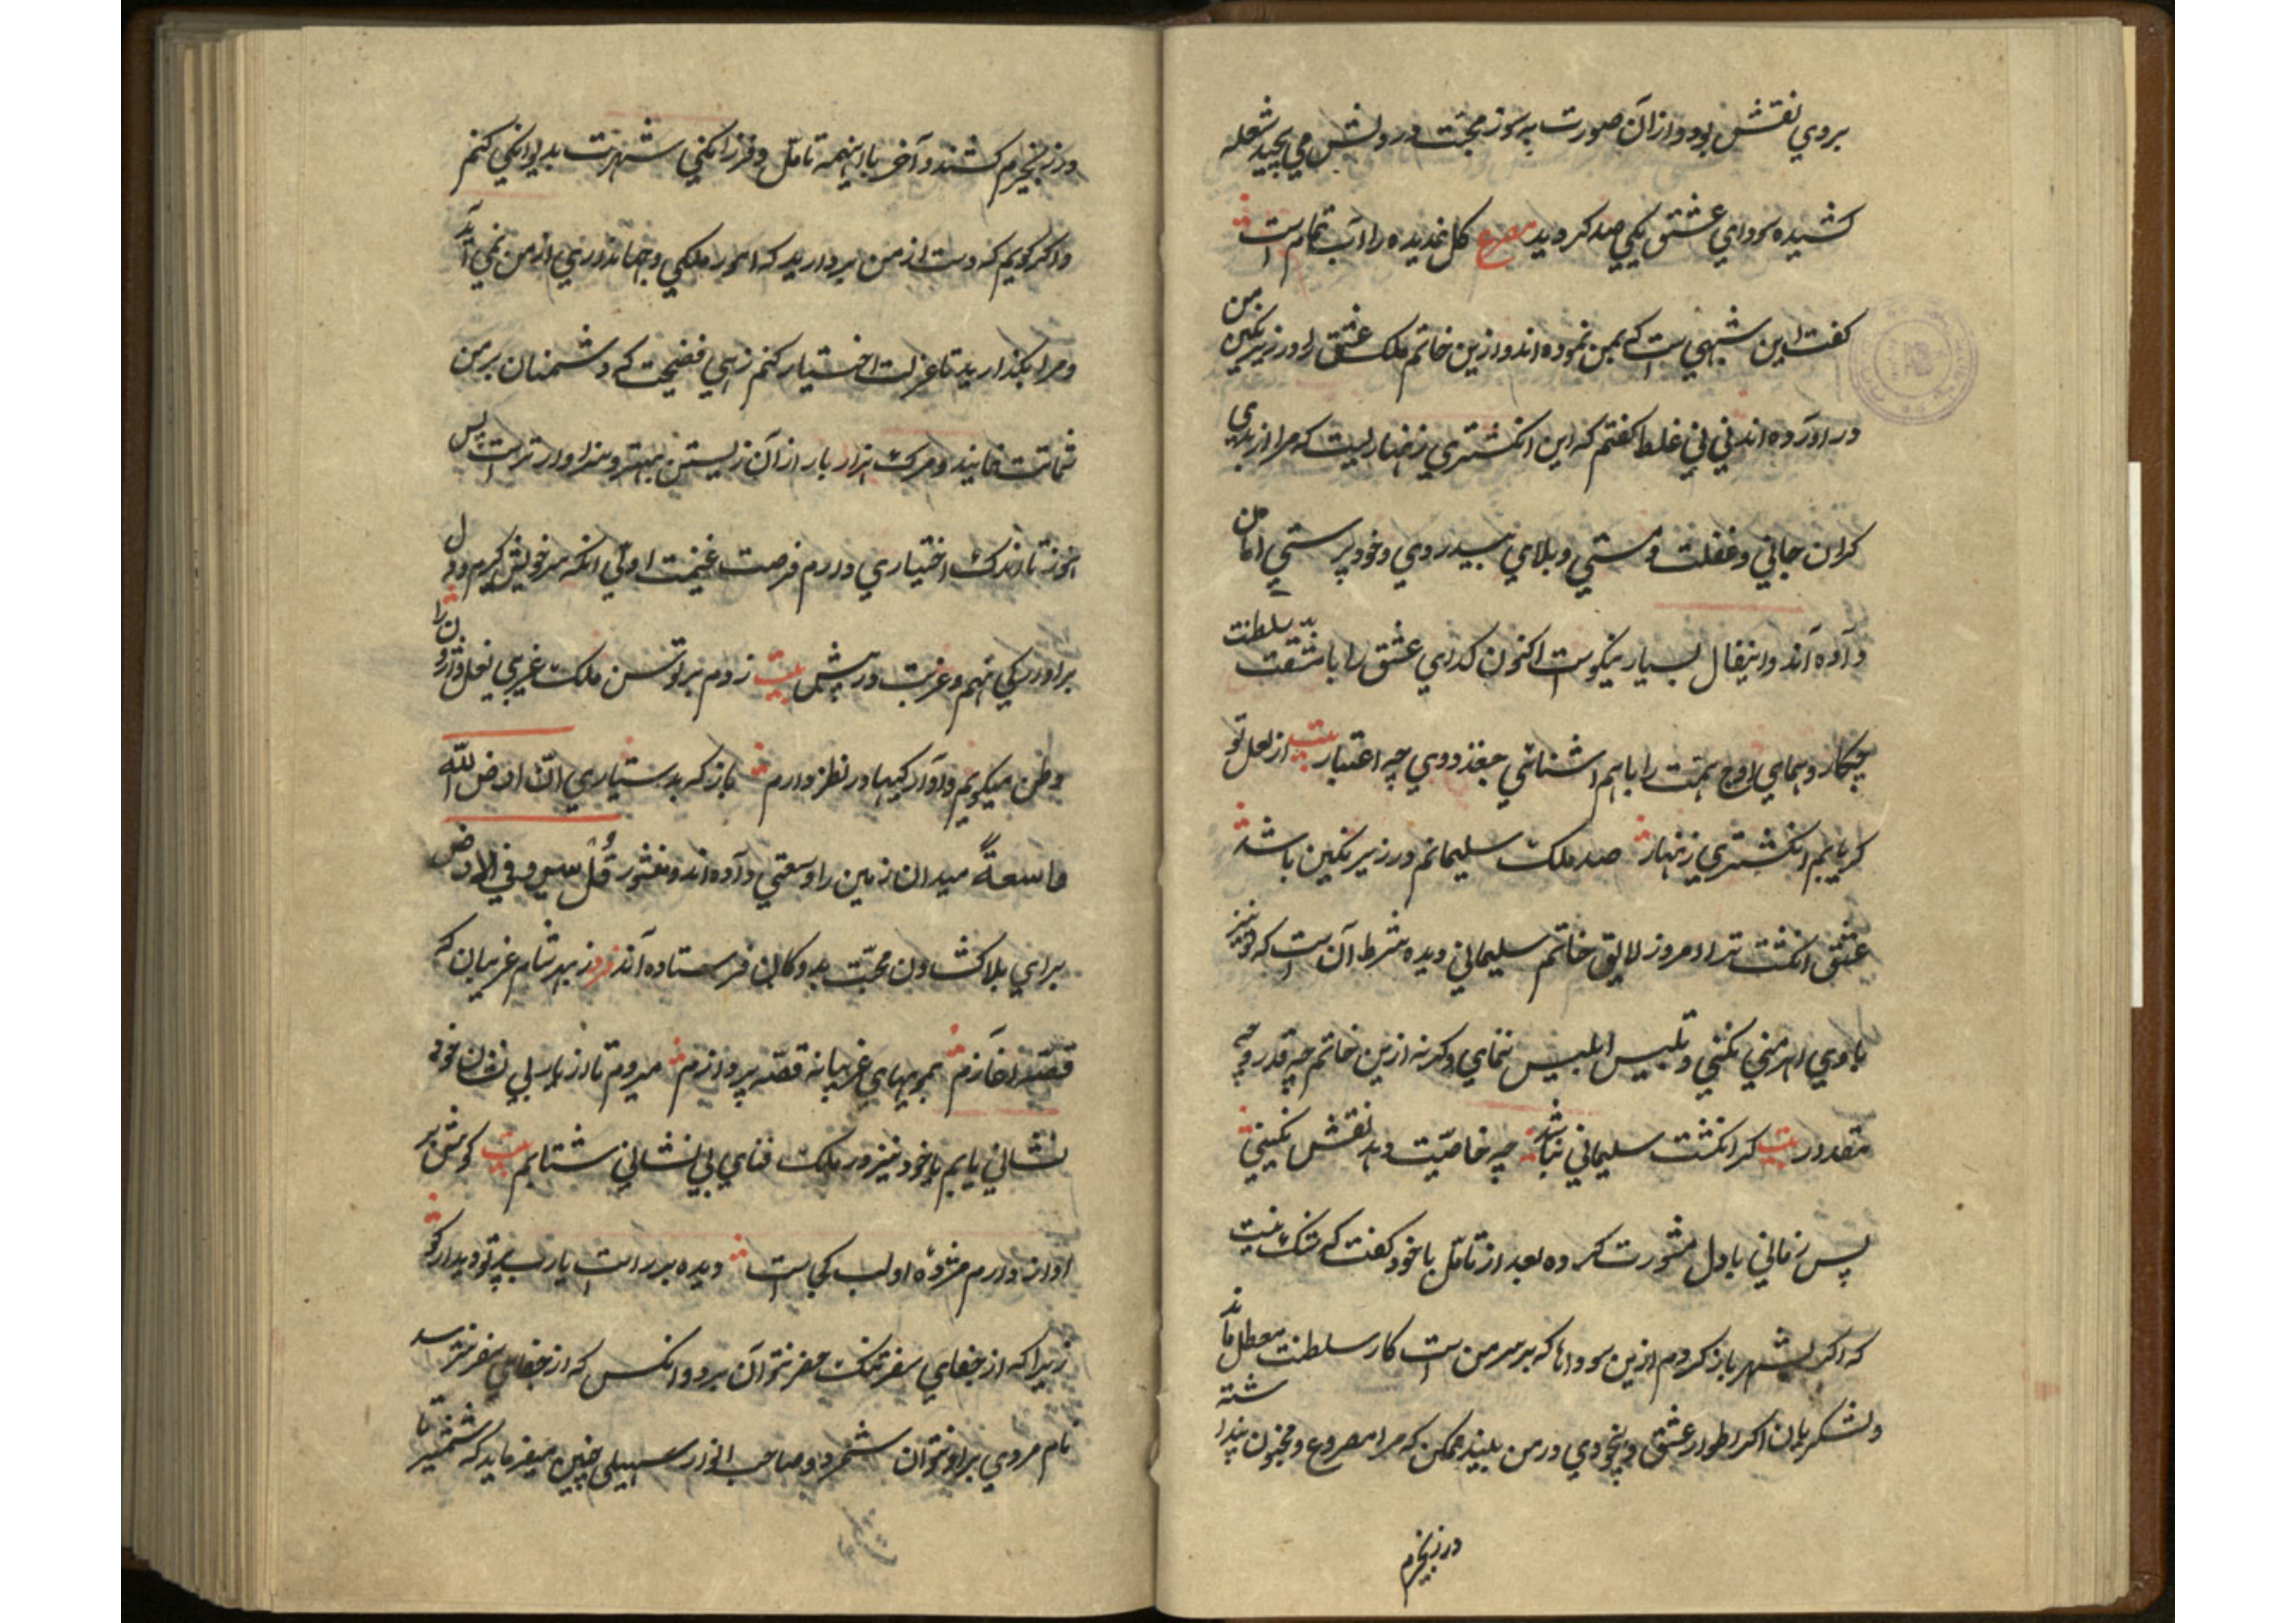 بروي نقش بود و از آن صورت پر سوز محبت در دلش مي پيچيد شعله
كشيده سوداي عشق يكي صد كرديد مصرع كل نديده را آب تمام است
كفت اين شبهي است كه بمن نموده اند و از ين خاتم ملك عشق را در زير نكين من
در آورده اند ني ني غلط كفتم كه اين انكشتري زنهار ليست كه مرا از بداي
كران جاني و غفلت و مستي و بلاي بيدردي و خود پرستي امان
داده اند و اينفال بسيار نيكوست اكنون كداي عشق را با سلطنت
چكار و هماي اوج همت را با هم آشنائي جغد دوي چه اعتبار بيت از لعل تو
كر يابم انكشتري زنهار صد ملك سليمانم در زير نكين باشد
عشق انكشت ترا امروز لايق خاتم سليماني ديده شرط آن است كه تو نيز
با وي اهرمني نكني و تلبيس ابليس ننماي وكرنه ازين خاتم چه قدر و چه
مقدار بيت كر انكشت سليماني نباشد چه خاصيت دهد نقش نكيني
پس زماني با دل مشورت كرده بعد از تامل با خود كفت كه شك نيست
كه اكر بشهر باز كردم ازين سوداها كه بر سر من است كار سلطنت معطل ماند
و لشكريان اكر اطوار عشق و بيخودي در من بينند ممكن كه مرا مصروع و مجنون پنداشته
در زنجيرم
در زنجيرم كشند و آخر با اينهمه تامل و فرزانكي شهرت بديوانكي كنم
و اكر كويم كه دست از من برداريد كه امور ملكي و جهانداري از من نمي آيد
و مرا بكذاريد تا عزلت اختيار كنم زهي فضيحت كه دشمنان بر من
شماتت نمايند و مرك هزار بار از آن زيستن بهتر و سزاوارتر است پس
هنوز تا اندك اختياري دارم فرصت غنيمت اولي انكه سر خويش كيرم و دل
بر آواركي نهم و غربت در پيش بيت زدم بر توسن ملك غريبي نعل وارون را
وطن ميكويم و آواركيها در نظر دارم باز كه بدستياري ان ارض الله
واسعة ميدان زمين را وسعتي داده اند و منشور قل سيروا في الارض
براي بلاكشان محبت بدوكان فرستاده اند فرو نماز شام غريبان كه
قصه آغازم بمويهاي غريبانه قصه پردازم ميروم تا از يار بي نشان خود
نشاني يابم يا خود نيز در ملك فناي بي نشاني شتابم بيت كوش بر
آواز دارم مژده اولب كي است ديده بر راه است يارب پرتو ديدار كو
زيرا كه از جفاي سفر تمتع حضر نتوان برد و انكس كه از جفاي سفر نترسد
نام مردي بر او نتوان شمرد و صاحب انوار سهيلي چنين ميفرمايد كه شمشير تا